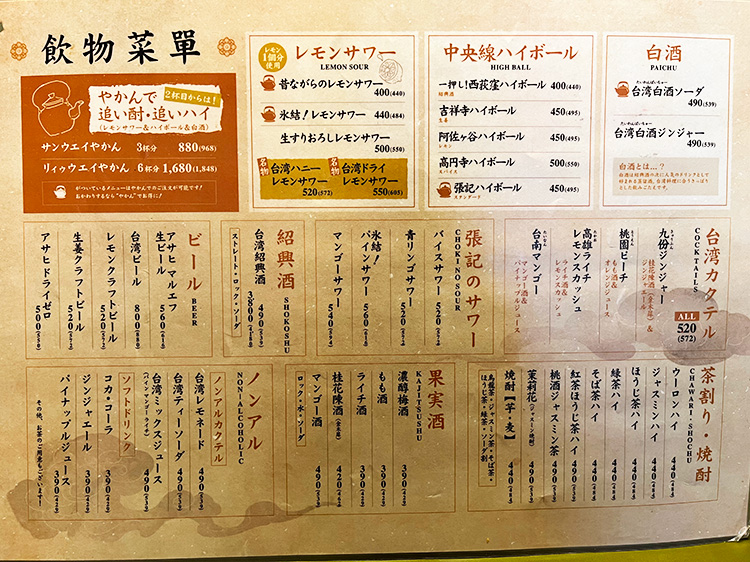 飲物菜單
やかんで
2杯目からは!
追い酎・追いハイ
(レモンサワー&ハイボール&白酒)
サンウエイやかん 3杯分 880(968)
リィウエイやかん 6杯分 1,680(1,848)
がついているメニューはやかんでのご注文が可能です!
おかわりするなら“やかん”でお得に!
レモン
1個分
使用
レモンサワー
LEMON SOUR
昔ながらのレモンサワー
400(440)
氷結!レモンサワー 440(484)
生すりおろしレモンサワー
500(550)
名物
台湾ハニー
レモンサワー
520(572)
名物
台湾ドライ
レモンサワー
550(605)
中央線ハイボール
HIGH BALL
一押し!西荻窪ハイボール 400(440)
紹興酒
吉祥寺ハイボール 450(495)
生姜
阿佐ヶ谷ハイボール 450(495)
レモン
高円寺ハイボール 500(550)
スパイス
張記ハイボール 450(495)
スタンダード
白酒
PAICHU
たいわんぱいちゅー
台湾白酒ソーダ
490(539)
たいわんぱいちゅー
台湾白酒ジンジャー
490(539)
白酒とは…?
台湾カクテル
COCKTAILS
ALL
520
(572)
九份ジンジャー
桂花陳酒(金木犀)&
ジンジャエール
桃園ピーチ
もも酒&
オレンジジュース
高雄ライチ
レモンスカッシュ
ライチ酒&
レモンスカッシュ
台南マンゴー
マンゴー酒&
パイナップルジュース
張記のサワー
CHOKI NO SOUR
バイスサワー 520(572)
青リンゴサワー 520(572)
氷結!
パインサワー 560(616)
マンゴーサワー 540(594)
紹興酒
SHOKOSHU
台湾紹興酒 490(539)
3800
ストレート・ロック・ソーダ
ビール
BEER
アサヒ マルエフ
生ビール 560(616)
台湾ビール 800(880)
レモンクラフトビール 520(572)
生姜クラフトビール 520(572)
アサヒドライゼロ 500(550)
茶割り・焼酎
CHAWARI・SHOCHU
ウーロンハイ 440(484)
ジャスミンハイ 440(484)
ほうじ茶ハイ 440(484)
緑茶ハイ 440(484)
そば茶ハイ 440(484)
紅茶ほうじ茶ハイ 440(484)
桃酒ジャスミン茶 490(539)
茉莉花(ジャスミン焼酎) 490(539)
焼酎【芋・麦】 440(484)
烏龍茶・ジャスミン茶・そば茶・
ほうじ茶・緑茶・ソーダ割
果実酒
KAJITSUSHU
濃醇梅酒 390(429)
もも酒 390(429)
ライチ酒 390(429)
桂花陳酒(金木犀) 420(462)
マンゴー酒 490(539)
ロック・水・ソーダ
ノンアル
NON・ALCOHOLIC
ノンアルカクテル
台湾レモネード 490(539)
台湾ティーソーダ 490(539)
台湾ミックスジュース 490(539)
(パイン マンゴー ライチ)
ソフトドリンク
コカ・コーラ 390(429)
ジンジャエール 390(429)
パイナップルジュース 390(429)
その他、お茶のご用意もございます!